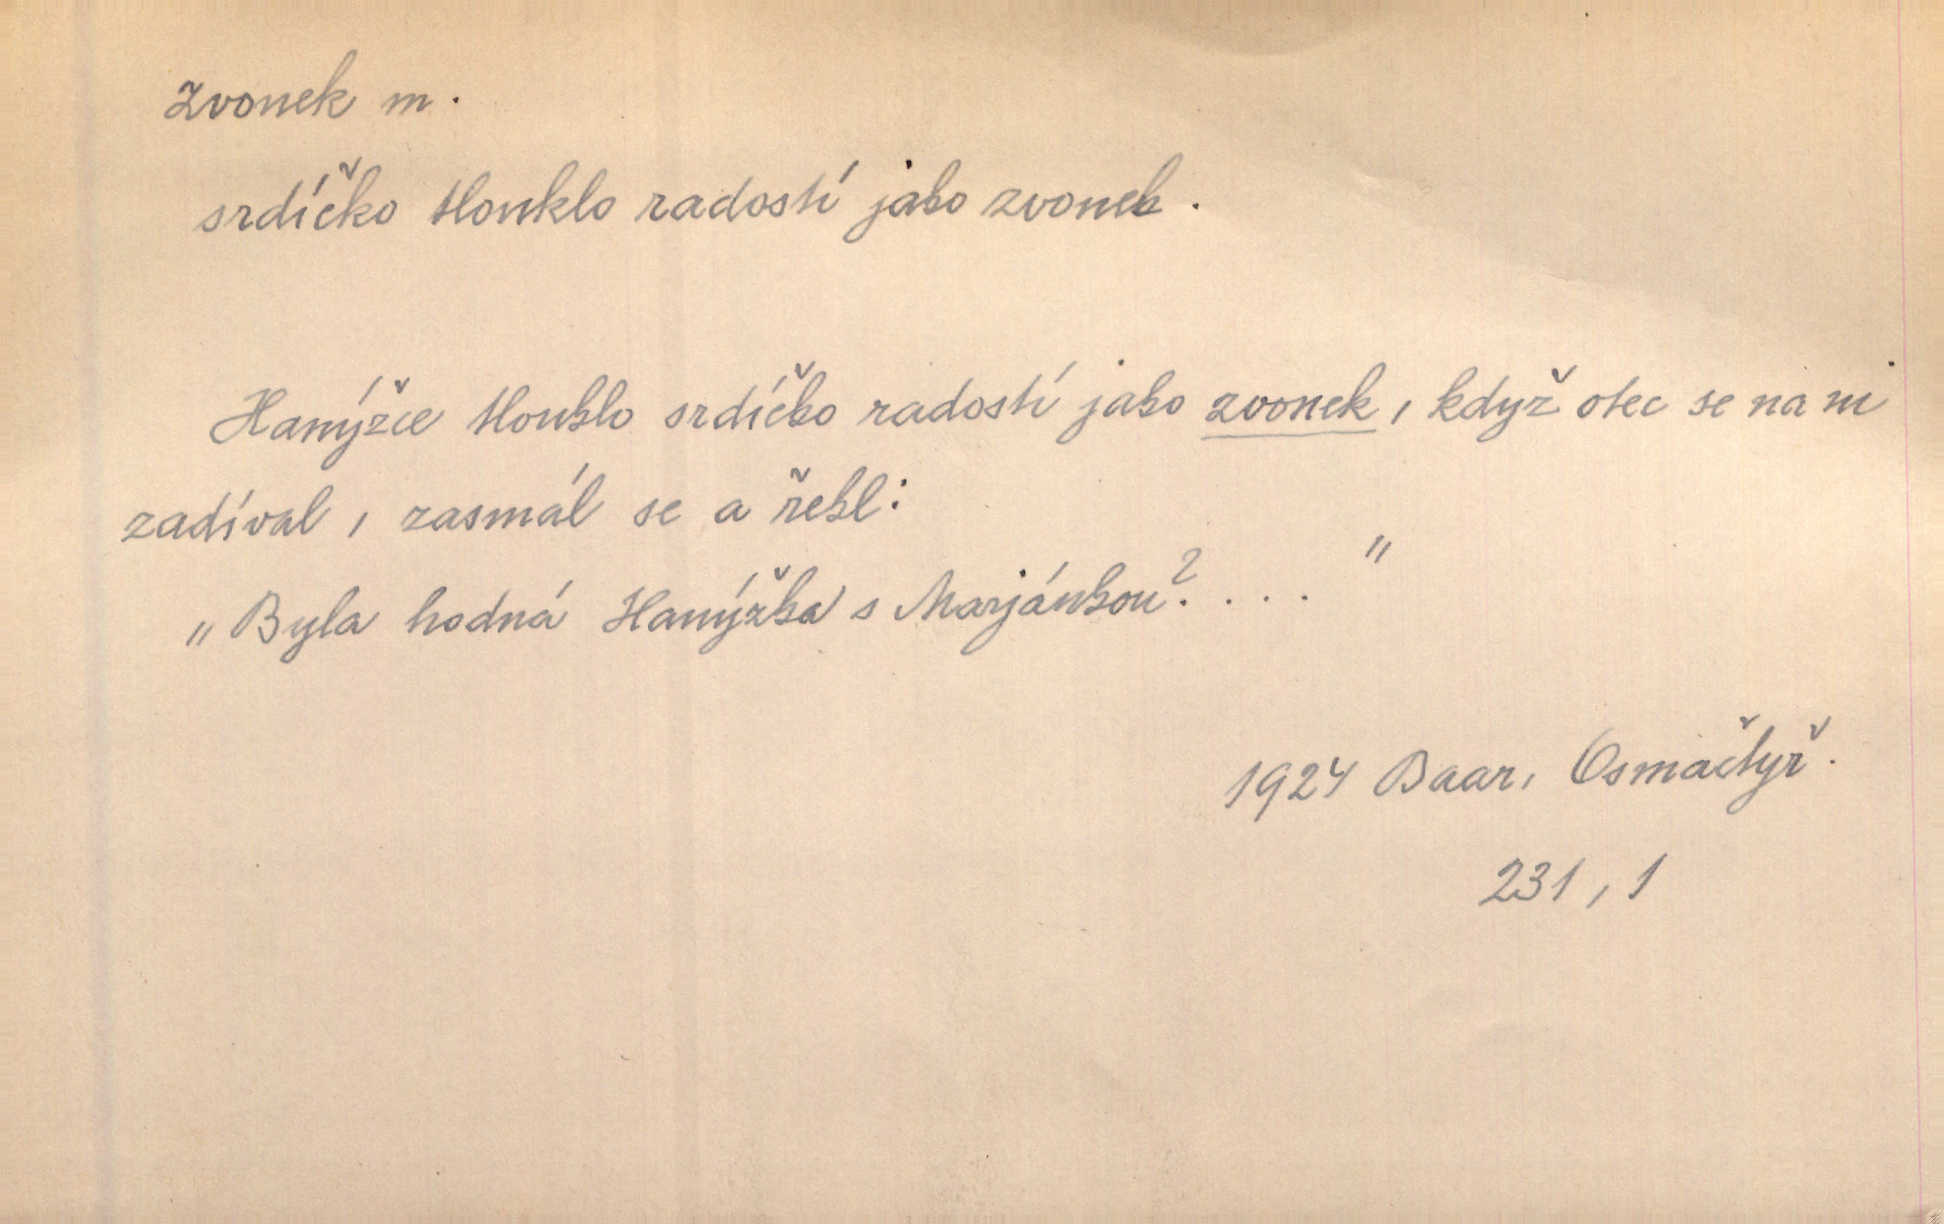 zvonek m.
srdíčko tlouklo radostí jako zvonek.
Hanýžce tlouklo srdíčko radostí jako zvonek, když otec se na ni
zadíval, zasmál se a řekl:
„Byla hodná Hanýžka s Marjánkou?...."
1924 Baar, Osmačtyř.
231, 1